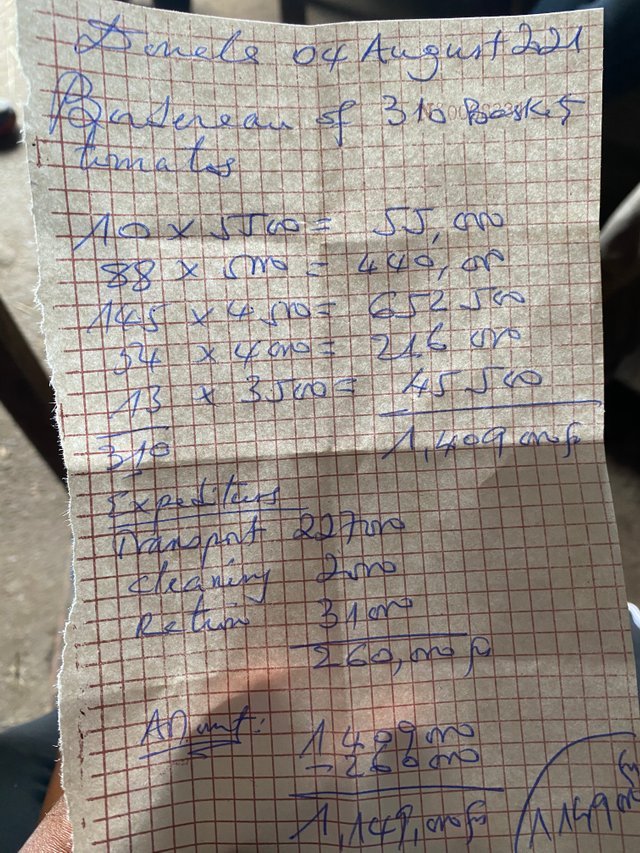 04 August 2021
Bordereau of 310 Baskets
tomatos
10 x 5500 = 55,000
88 x 5000 = 440,000
145 x 4500 = 652500
54 x 4000 = 216000
13 x 3500 = 45500
310 1,409000f
Expeditures
Transport 227000
cleaning 2000
Return 31000
260,000f
Amount: 1409000
-260000
1,149,000f
1149000f